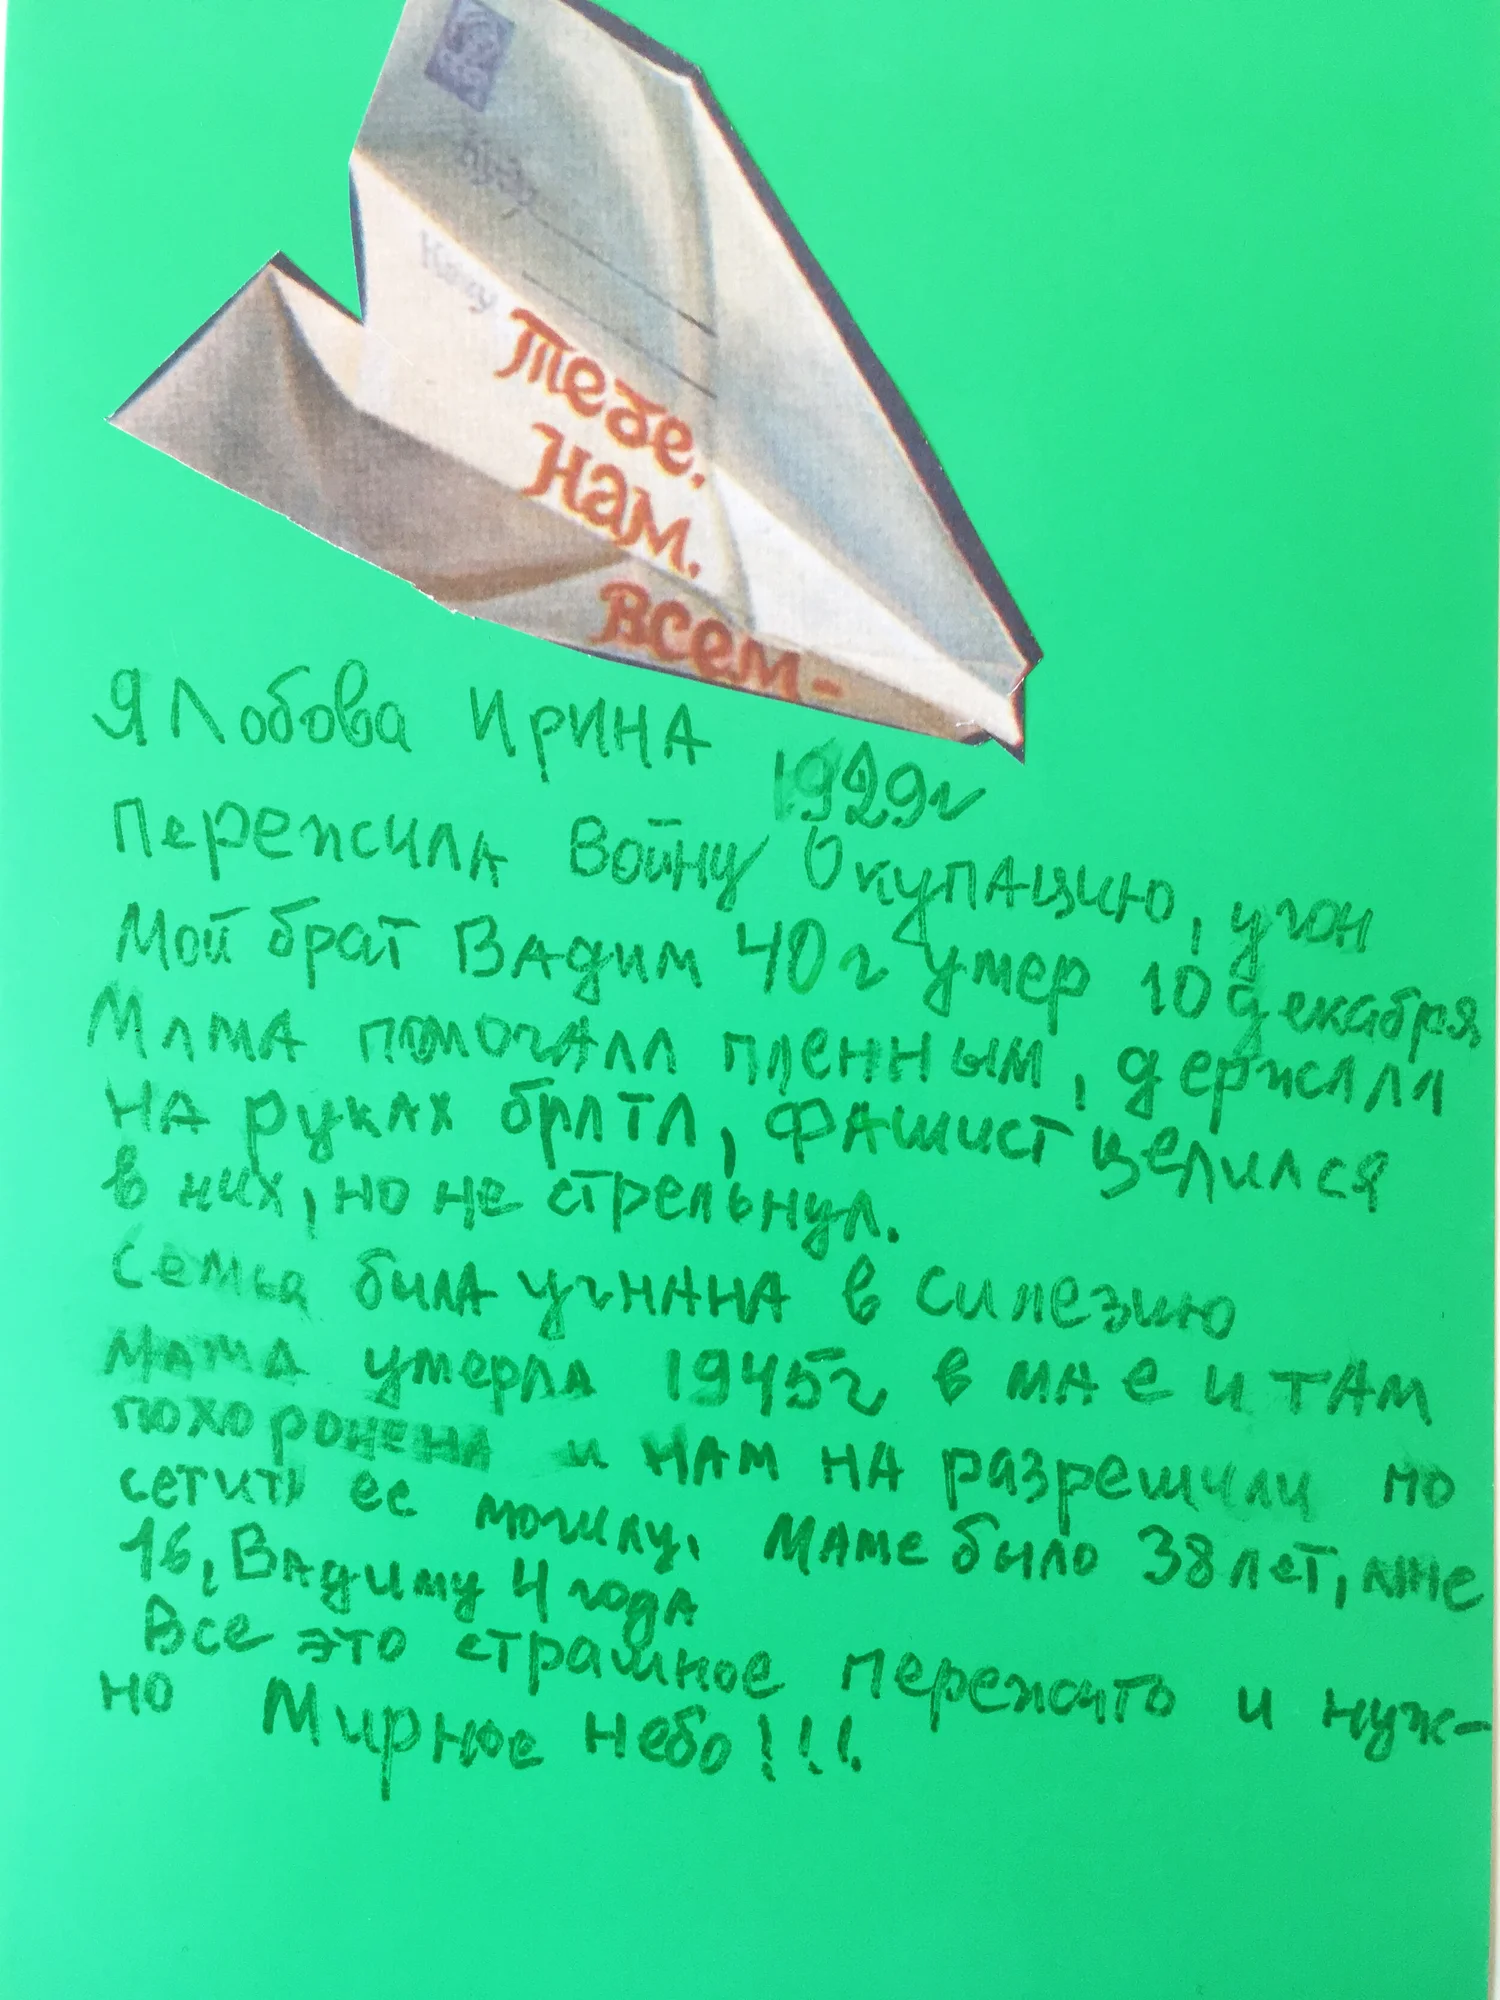 Куда
Кому
Тебе.
Нам.
Всем-
Я Лобова Ирина 1929г
Пережила Войну Окупацию, угон
Мой брат Вадим 40г умер 10 декабря
Мама помогала пленным, держала
на руках брата, Фашист целился
в них, но не стрельнул.
Семья была угнана в Силезию
мама умерла 1945г в мае и там
похоронена и нам на разрешили по
сетить ее могилу. Маме было 38 лет, мне
16, Вадиму 4 года
Все это страшное пережить и нуж-
но Мирное небо!!!